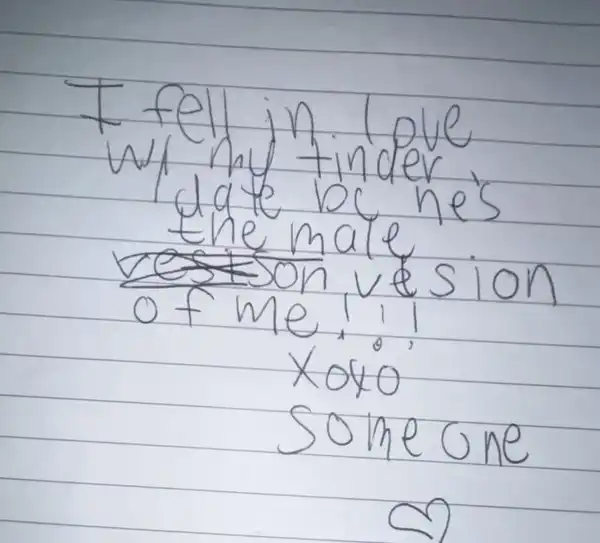 I fell in love
w/ my tinder
date bc he's
the male
vestson vesion
of me!!!
xoxo
someone